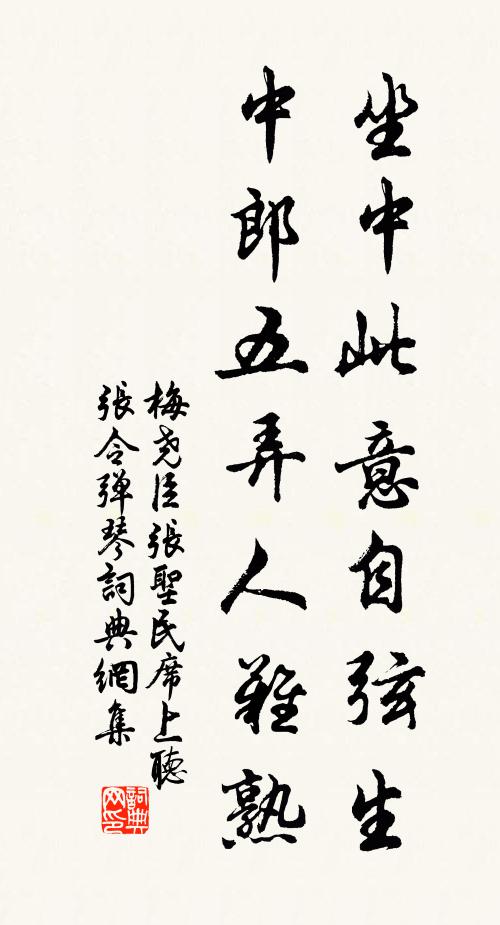 坐中此意自弦生
中郎五弄人難熟
梅尧臣張聖民席上聽
張令弹琴詞典網集
詞典
网印